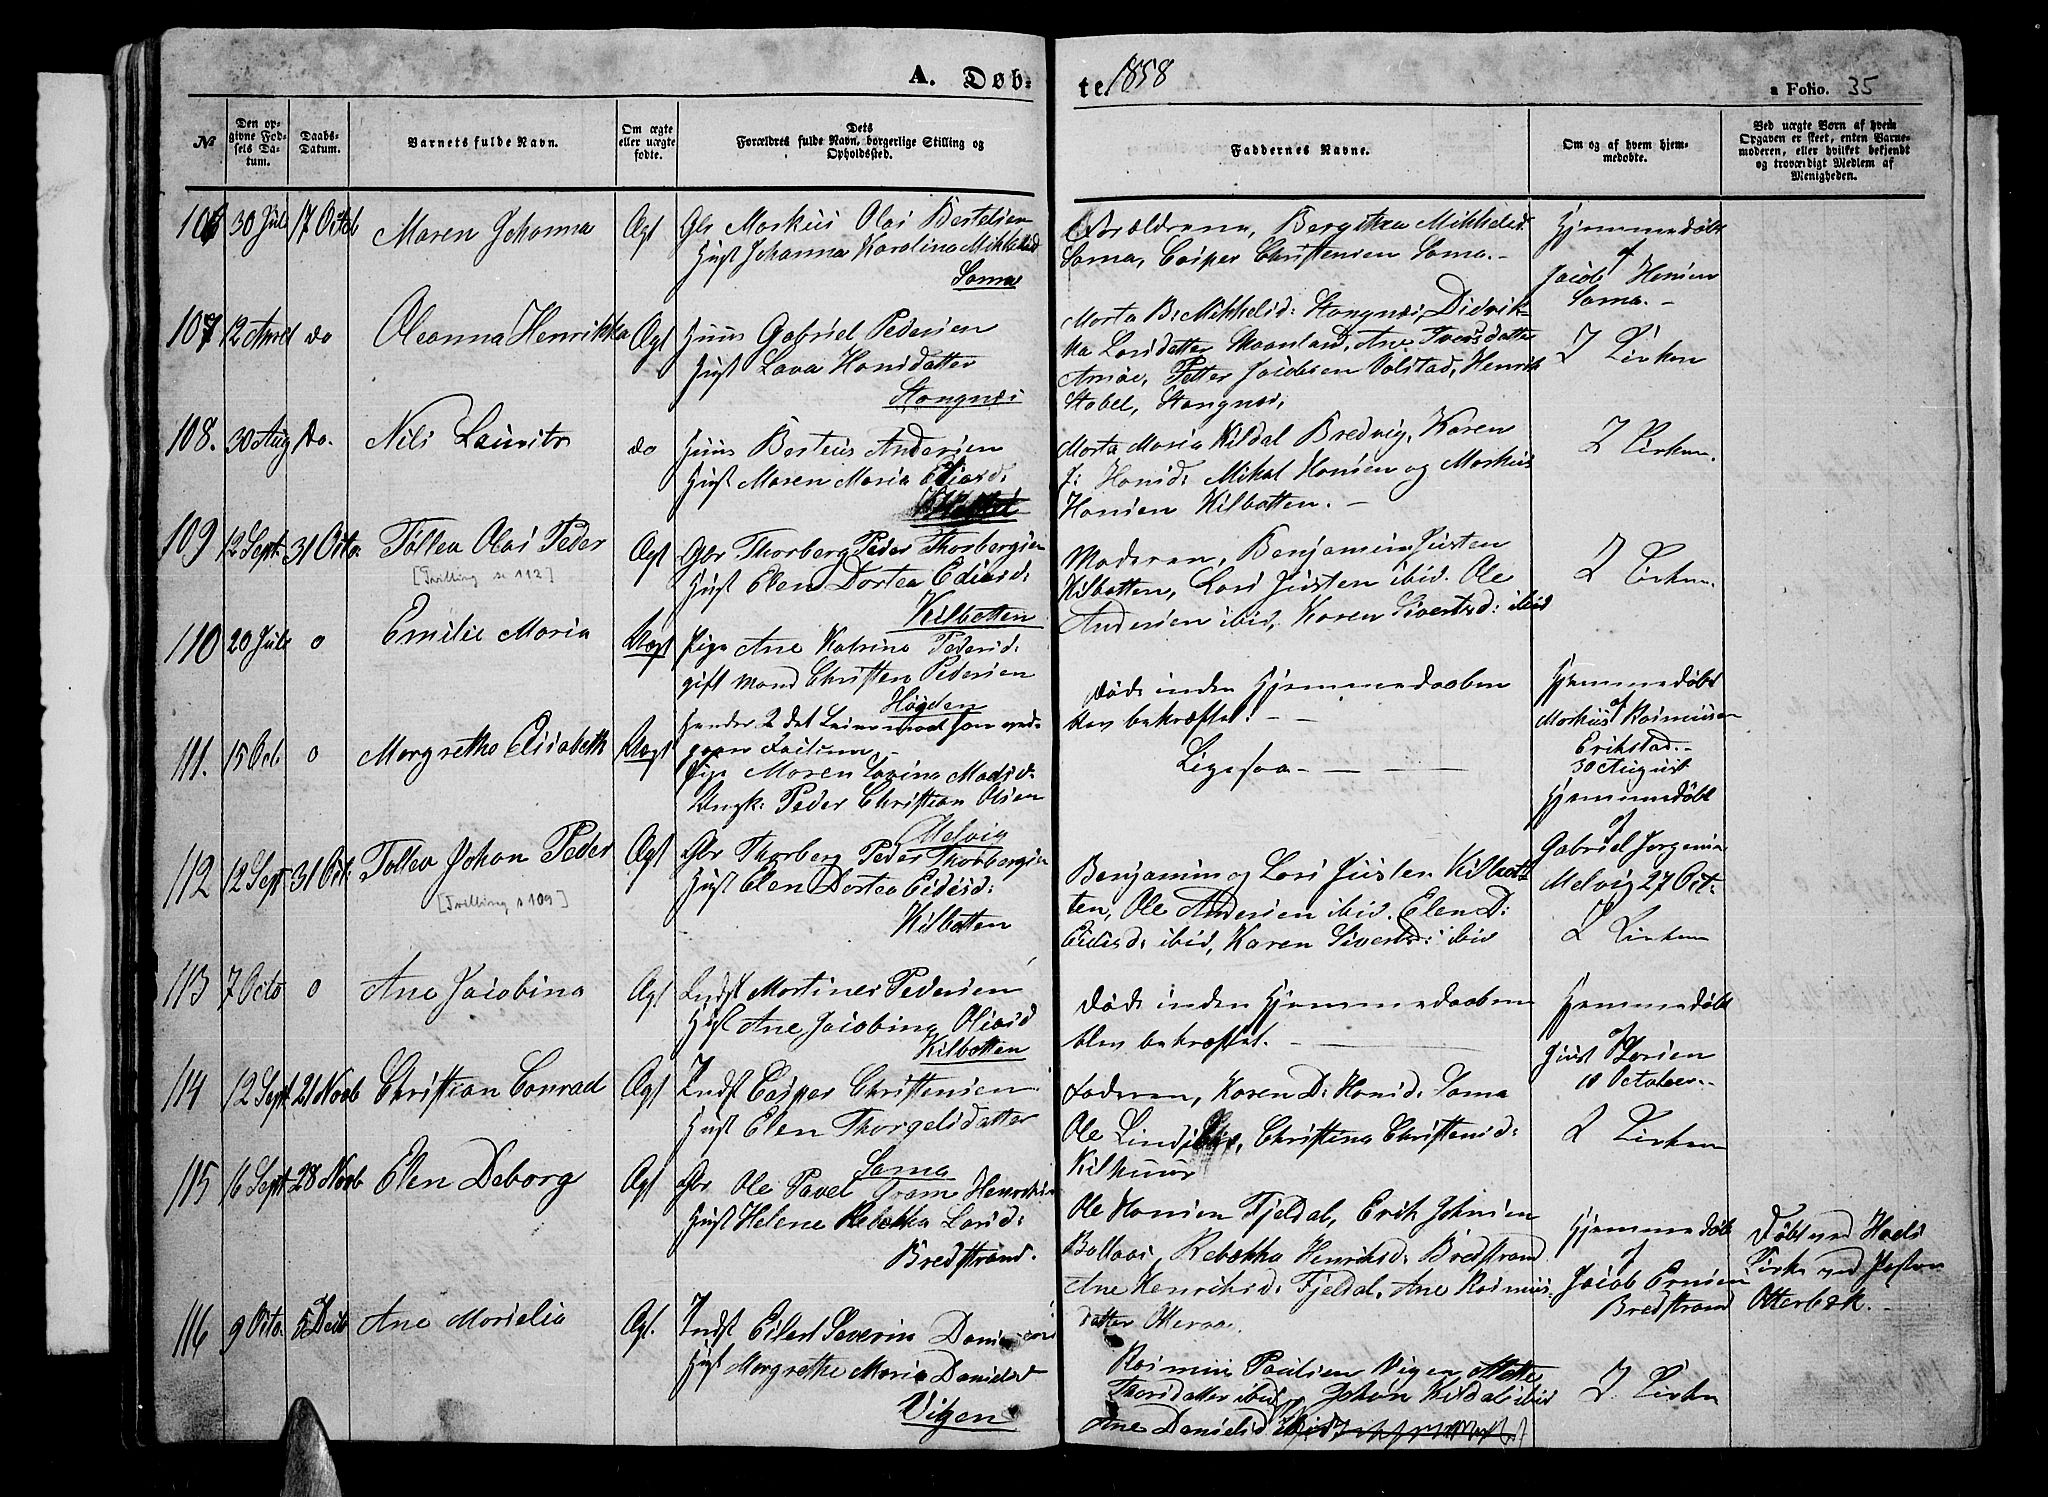 A. Døb-
te. 1858
a Folio. 35
№
Den op-
givne Fød-
sels Da-
tum.
Daabs-
Datum.
Barnets fulde Navn.
Om ægte
eller uægte
fødte.
Dets
Forældres fulde Navn, borgerlige Stilling og
Opholdssted.
Faddernes Navne.
Om og af hvem hjem-
medøbte.
Ved uægte Børn af hvem
Opgaven er skeet, enten Barne-
moderen, eller hvilket bekjendt
og troværdigt Medlem af
Menigheden.
106 30 Juli 17 Octob Maren Johanna Ægt Gbr Markus Olai Bertelsen
Hust Johanna Karolina Mikkelsd
Sama
Forældrene, Bergitha Mikkelsd:
Sama, Casper Christensen Sama. -
Hjemmedøbt
af
Jacob Hansen
Sama. -
107 12 do Oleanna Henrikka Ægt Huus Gabriel Pedersen
Hust Lava Hansdatter
Stangnæs
Marta B: Mikkelsd: Stangnæs, Didrik-
ka Larsdatter Maanland, Ane Iversdatter
Arnøe, Petter Jacobsen Volstad, Henrik
Stabel, Stangnæs.
I Kirken
108. 30 Aug Do. Nils Lauritz do Huus Berteus Andersen
Hust Maren Maria Eliasd:
Marta Maria Kildal Bredvig, Karen
J: Hansd: Mikal Hansen og Markus
Hansen Kilbotten. -
I Kirken.
109 12 Sept: 31 Octo. Tollev Olai Peder Ægt Gbr Thorberg Peder Thorbergsen
[Tvilling se 112]
Hust Elen Dortea Ediasd:
Kilbotten
Moderen, Benjamin Justen
Kilbotten, Lars Justen ibid. Ole
Andersen ibid, Karen Sivertsd: ibid
I Kirken.
110 20 Juli o Emilie Maria Uægt Pige Ane Katrina Pedersd:
gift mand Christen Pedersen
Høgden
Døde inden Hjemmedaaben
blev bekræftet. - -
Hjemmedøbt
af
Markus Rasmussen
Erikstad. -
30 August
111. 15 Oct. o Margrethe Elisabeth Uægt
Pige Maren Lavina Madsd:
Ungk: Peder Christian Olsen
Melvig
Ligesaa - - - -
Hjemmedøbt
af
Gabriel Jørgensen
Melvig 27 Oct.
112 12 Sept 31 Oct: Tollev Johan Peder Ægt Gbr Thorberg Peder Thorbergsen
[Tvilling s 109]
Hust Elen Dortea Eidisd:
Kilbotten
Benjamin og Lars Justen Kilbot-
ten, Ole Andersen ibid. Elen D:
Eidisd: ibid, Karen Sivertsd: ibid
I Kirken
113 7 Octo o Ane Jacobina Ægt Indst Martines Pedersen
Hust Ane Jacobina Oliasd
Kilbotten
Døde inden Hjemmedaaben
blev bekræftet. -
Hjemmedøbt
af
Just Larsen
10 October. -
114 12 Sept 21 Novb Christian Conrad Ægt Indst Casper Christensen
Hust Elen Thorgelsdatter
Sama
Faderen, Karen D: Hansd: Sama
Ole ibid, Christina Christensd:
Kilhuus
I Kirken
115 16 Sept 28 Novb Elen Deborg Ægt Gbr Ole Pavel Gram Henriksen
Hust Helene Rebekka Larsd:
Bredstrand.
Ole Hansen Fjeldal, Erik Johnsen
Rebekka Henriksd: Bredstrand
Ane Henriksd: Fjeldal, Ane Rasmus-
datter
Hjemmedøbt
af
Jacob Ernsen
Bredstrand
Døbt ved Hols
Kirke ved Pastor
Otterbæk. -
116 9 Octo. 5 Decb Ane Marselia Ægt. Indst Eilert Severin Danielsen
Hust Margrethe Maria Danielsd
Vigen
Rasmus Paulsen Vigen, Mette
Thorsdatter ibid, Johan Kildal ibid
Ane Danielsd ibid
I Kirken